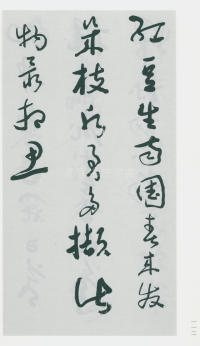 红豆生南國春来发
枝君多撷此
物最相思